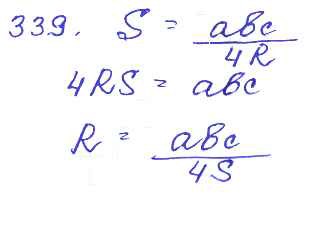 339. S = abc/4R
4RS = abc
R = abc/4S